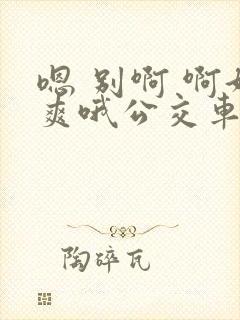 嗯 别啊 啊好
爽哦公交车
陶碎瓦